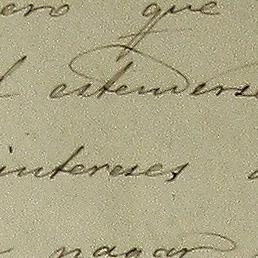 ero que
estenderse
intereses
pagar